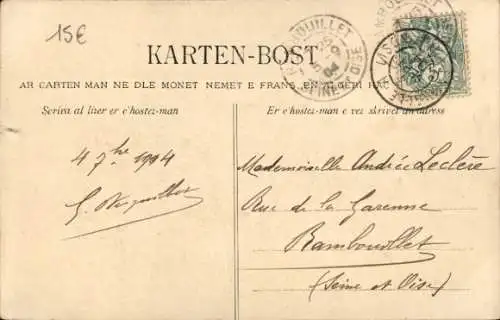 15€
RAMBOUILLET
KARTEN-BOST
AR CARTEN MAN NE DLE MONET NEMET E FRANS, EN ALGERI HAG
Scriva al lizer er c'hostez-man
Er c'hostez-man e vez skrivet an adress
4 7bre 1904
Mademoiselle Andrée Leclère
Rue de la Garenne
Rambouillet
(Seine et Oise)